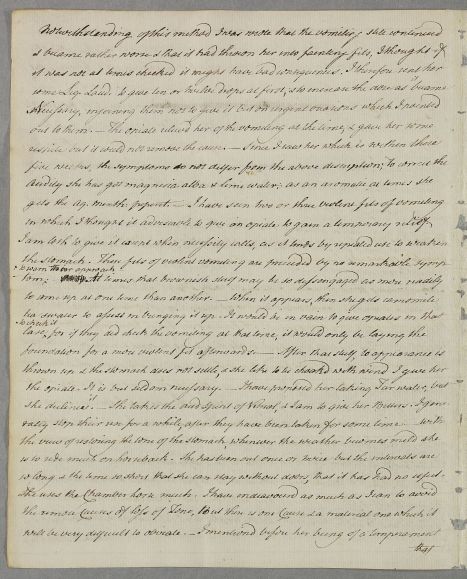 Notwithstanding of this method I was wrote that the vomiting still continued
& became rather worse & that it had thrown her into fainting fits, I thought if
it was not at times checked it might have bad consequences. I therefore sent her
some Liq: Laud. to give ten or twelve drops at first, & to increase the dose as it became
necessary, informing them not to give it but on urgent occasions which I pointed
out to them. — The opiate relieved her of the vomiting at the time, & gave her some
respite but it would not remove the cause. — Since I saw her which is within these
five weeks, the symptoms do not differ from the above description; to correct the
acidity she has got magnesia alba & lime water; as an aromatic at times she
gets the aq. menth. piperit. — I have seen two or three violent fits of vomiting
in which I thought it adviseable to give an opiate to gain a temporary relief
I am loth to give it except when necessity calls, as it tends by repeated use to weaken
the stomach. These fits of violent vomiting are preceded by no remarkable symp
to warn their approach
tom; At times that brownish stuff may be so disengaged as more readily
to come up at one time than another. — When it appears, then she gets camomile
tea & water to assist in bringing it up. It would be in vain to give opiates in that
to check it
case, for if they did check the vomiting at that time, it would only be laying the
foundation for a more violent fit afterwards. — After that stuff, to appearance is
thrown up & the stomach does not settle, & she like to be choaked with wind I give her
the opiate. It is but seldom necessary. — I have proposed her taking Tar water, but
she declines it. — She takes the acid Spirit of Vitriol, & I am to give her Bitters. I gene
rally stop their use for a while, after they have been taken for some time — with
the view of restoring the tone of the stomach, whenever the weather becomes mild she
is to ride much on horseback. She has been out once or twice but the intervals are
so long & the time so short that she can stay without doors, that it has had no effect.
She uses the Chamber horse much. I have endeavoured as much as I can to avoid
the remote Causes of loss of Tone, but there is one Cause & a material one which it
will be very difficult to obviate. — I mentioned before her being of a temperament
that